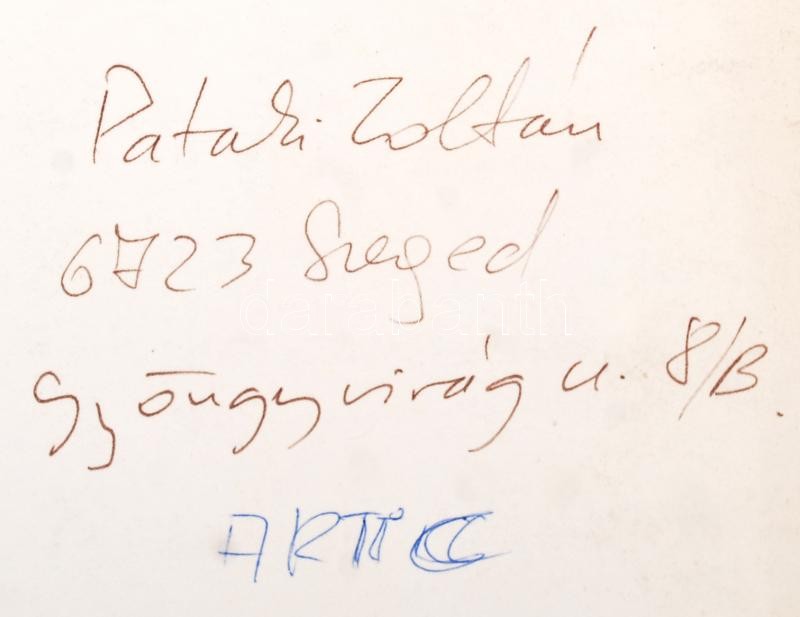 Pataki Zoltán
6723 Szeged
Gyöngyvirág u. 8/B.
darabanth